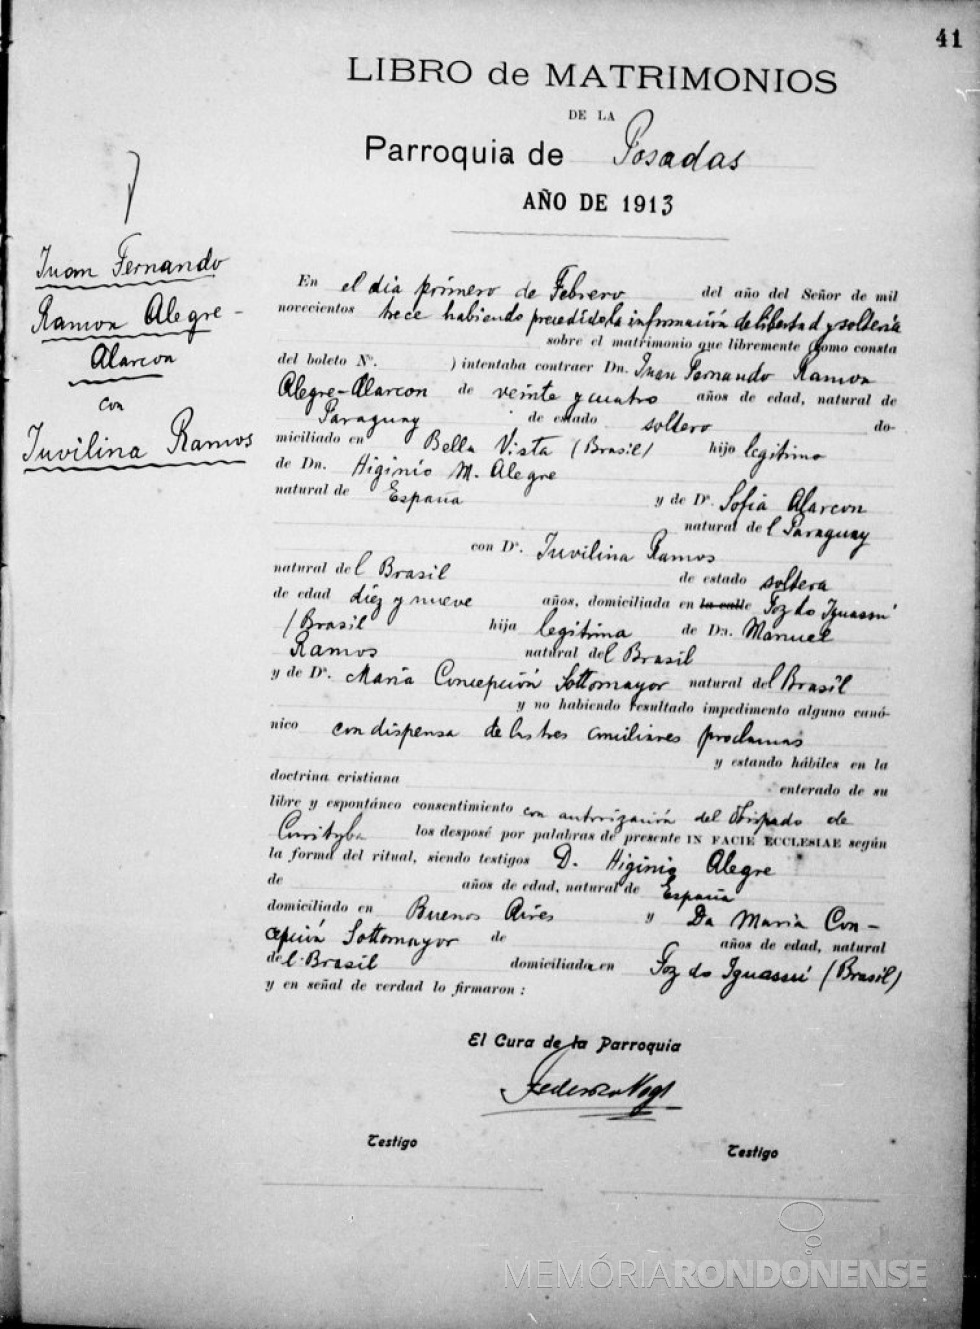 41
LIBRO de MATRIMONIOS
DE LA
Parroquia de Posadas
AÑO DE 1913
Juan Fernando
Ramon Alegre-
Alarcon
con
Juvilina Ramos
En el dia primero de Febrero del año del Señor de mil
novecientos trece habiendo precedido la información de libertad y solteria
sobre el matrimonio que libremente (como consta
del boleto Nº. ) intentaba contraer Dn. Juan Fernando Ramon
Alegre-Alarcon de veinte y cuatro años de edad, natural de
Paraguay de estado soltero do-
miciliado en Bella Vista (Brasil) hijo legitimo
de Dn. Higinio M. Alegre
natural de España y de Dª. Sofia Alarcon
natural del Paraguay
con Dª. Juvilina Ramos
natural del Brasil de estado soltera
de edad diez y nueve años, domiciliada en la calle Foz do Iguassú
(Brasil hija legitima de Dn. Manuel
Ramos natural del Brasil
y de Dª. Maria Concepción Sottomayor natural del Brasil
y no habiendo resultado impedimento alguno canó-
nico con dispensa de las tres conciliares proclamas
y estando hábiles en la
doctrina cristiana enterado de su
libre y espontáneo consentimiento con autorización del Obispado de
Curityba los desposé por palabras de presente IN FACIE ECCLESIAE según
la forma del ritual, siendo testigos D. Higinio Alegre
de años de edad, natural de España
domiciliado en Buenos Aires y Da Maria Con-
cepción Sottomayor de años de edad, natural
del Brasil domiciliada en Foz do Iguassú (Brasil)
y en señal de verdad lo firmaron:
El Cura de la Parroquia
Federico Vogt
Testigo Testigo
MEMÓRIARONDONENSE